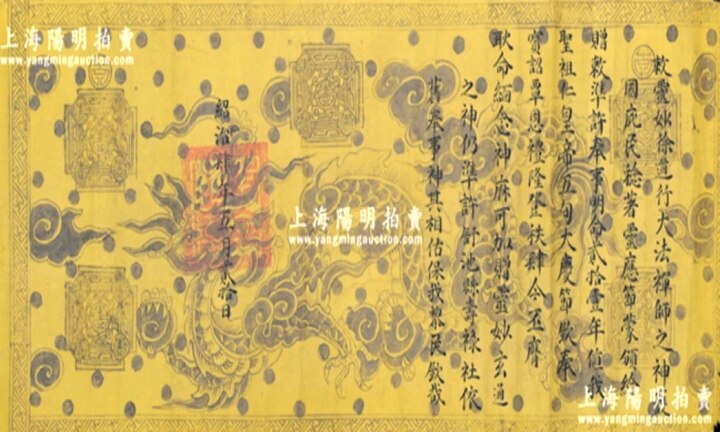 敕靈妙徐道行大法禪師之神
國庇民稔著靈應節蒙頒給
贈敕準許奉事明命貳拾壹年值我
聖祖仁皇帝五旬大慶節欽奉
寶詔覃恩禮隆登秩肆今丕膺
耿命緬念神庥可加贈靈妙玄通
之神仍準許舒池縣壽祿社依
舊奉事神其相佑保我黎民欽哉
紹治肆年五月貳拾日
上海陽明拍賣
www.yangmingauction.com
上海陽明拍賣
www.yangmingauction.com
上海陽明拍賣
www.yangmingauction.com